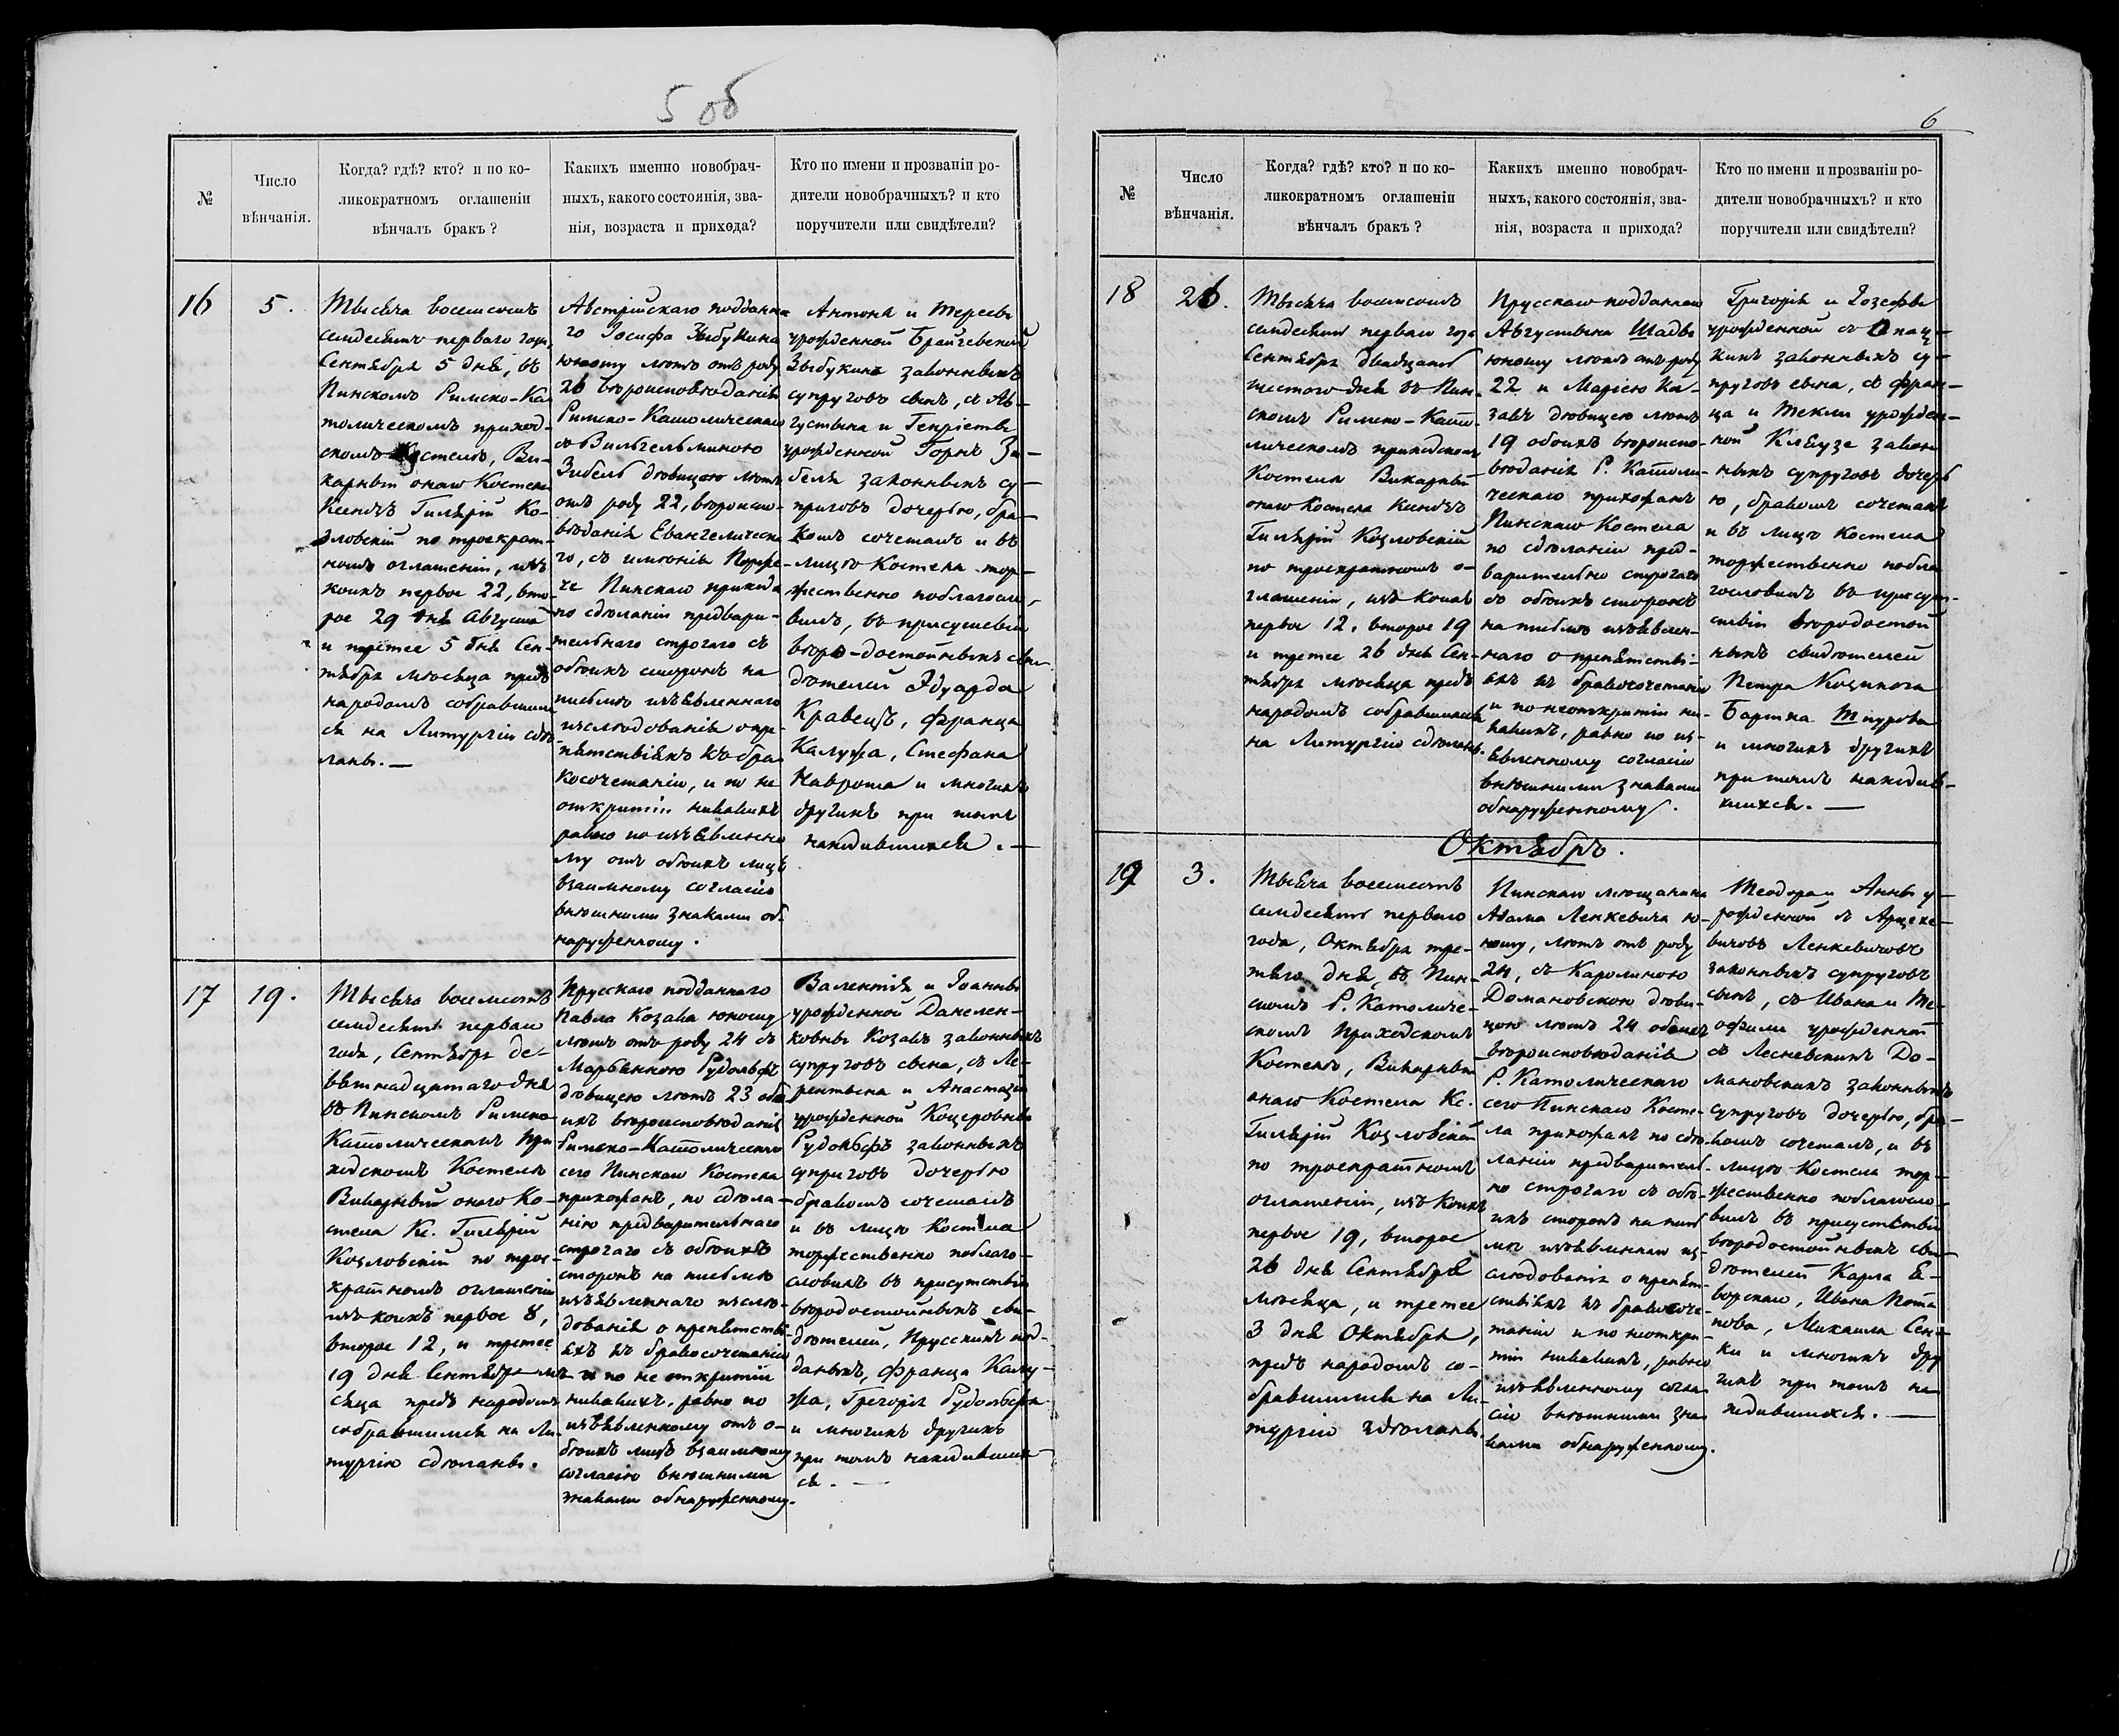 5 об
№
Число
вѣнчанія.
Когда? гдѣ? кто? и по ко-
ликократномъ оглашеніи
вѣнчалъ бракъ?
Какихъ именно новобрач-
ныхъ, какого состоянія, зва-
нія, возраста и прихода?
Кто по имени и прозванію ро-
дители новобрачныхъ? и кто
поручители или свидѣтели?
16
5.
Тысяча восемсотъ
семдесятъ перваго года,
Сентября 5 дня, въ
Пинскомъ Римско-Ка
толическомъ приход-
скомъ Костелѣ, Ви-
карный онаго Костела
Ксендзъ Гилярій Ко-
зловскій по троекрат-
номъ оглашеніи, изъ
коихъ первое 22, вто-
рое 29 дня Августа
и третее 5 дня Сен-
тября мѣсяца предъ
народомъ собравшим
ся на Литургію сдѣ-
ланы. —
Австрійскаго подданна
го Іосифа Зыбукина
юношу лѣтъ отъ роду
26 вѣроисповѣданія
Римско-Католическаго
съ Вильгельминою
Зибель дѣвицею лѣтъ
отъ роду 22, вѣроиспо-
вѣданія Евангелическа
го, съ имѣнія
Пинскаго прихода
по сдѣланіи предвари-
тельнаго строгаго съ
обоихъ сторонъ на
письмѣ изъявленнаго
изслѣдованія о пре-
пятствіяхъ къ бра
косочетанію, и по не
открытіи никакихъ
равно по изъявленно
му отъ обоихъ лицъ
взаимному согласію
внѣшними знаками об-
наруженному.
Антона и Тересы
урожденной Брайчевской
Зыбукина законныхъ
супруговъ сынъ, съ Ав-
густына и Генріеты
урожденной Горнъ Зи-
бель законныхъ су-
пруговъ дочерью, бра-
комъ сочеталъ и въ
лицѣ Костела тор-
жественно поблагосло-
вилъ, въ присутствіи
вѣро-достойныхъ сви-
дѣтелей Эдуарда
Кравецъ, Франца
Калужа, Стефана
Наврота и многихъ
другихъ при томъ
находившихся. —
17
19.
Тысяча восемсотъ
семдесятъ перваго
года, Сентября де-
вятнадцатаго дня
въ Пинскомъ Римско
Католическомъ При
ходскомъ Костелѣ
Викарный онаго Ко-
стела Кс. Гилярій
Козловскій по трое-
кратномъ оглашеніи
изъ коихъ первое 8,
второе 12, и третее
19 дня Сентября мѣ-
сяца предъ народомъ
собравшимся на Ли-
тургію сдѣланы.
Прусскаго подданнаго
Павла Козака юношу
лѣтъ отъ роду 24 съ
Марьянною Рудольфъ
дѣвицею лѣтъ 23 обо
ихъ вѣроисповѣданія
Римско-Католическаго
сего Пинскаго Костела
прихожанъ, по сдѣла-
нію предварительнаго
строгаго съ обоихъ
сторонъ на письмѣ
изъявленнаго изслѣ-
дованія о препятстві-
яхъ къ бракосочетанію
и по не открытіи
никакихъ, равно по
изъявленному отъ о-
боихъ лицъ взаимному
согласію внѣшними
знаками обнаруженному.
Валентія и Іоанны
урожденной Данелен-
ковны Козакъ законныхъ
супруговъ сына, съ Ле-
рентына и Анастазіи
урожденной Коцеровны
Рудольфъ законныхъ
супруговъ дочерью
бракомъ сочеталъ
и въ лицѣ Костела
торжественно поблаго-
словилъ въ присутствіи
вѣродостойныхъ сви-
дѣтелей, Прусскихъ под-
даныхъ, Франца Калу-
жа, Грегорія Рудольфа
и многихъ другихъ
при томъ находивших
ся. —
6
№
Число
вѣнчанія.
Когда? гдѣ? кто? и по ко-
ликократномъ оглашеніи
вѣнчалъ бракъ?
Какихъ именно новобрач-
ныхъ, какого состоянія, зва-
нія, возраста и прихода?
Кто по имени и прозванію ро-
дители новобрачныхъ? и кто
поручители или свидѣтели?
18
26.
Тысяча восемсотъ
семдесятъ перваго года
Сентября двадцать
шестого дня въ Пин-
скомъ Римско-Като-
лическомъ приходскомъ
Костелѣ Викарный
онаго Костела Ксендзъ
Гилярій Козловскій
по троекратномъ о-
глашеніи, изъ коихъ
первое 12, второе 19
и третее 26 дня Сен-
тября мѣсяца предъ
народомъ собравшимся
на Литургію сдѣланы.
Прусскаго подданнаго
Августына Шадва
юношу лѣтъ отъ роду
22 и Марією Ка-
закъ дѣвицею лѣтъ
19 обоихъ вѣроиспо-
вѣданія Р. Католи-
ческаго прихожанъ
Пинскаго Костела
по сдѣланіи пред-
варительно строгаго
съ обоихъ сторонъ
на письмѣ изъявлен-
наго о препятстві-
яхъ къ бракосочетанію
и по неоткрытіи ни-
какихъ, равно по изъ-
явленному согласію
внѣшними знаками
обнаруженному.
Григорія и Іозефы
урожденной съ
законныхъ су-
пруговъ сына, съ Фран-
ца и Текли урожден-
ной Клаузе закон
ныхъ супруговъ дочерь
ю, бракомъ сочеталъ
и въ лицѣ Костела
торжественно побла
гословилъ въ присут-
ствіи вѣродостой
ныхъ свидѣтелей
Петра
Бартка
и многихъ другихъ
при томъ находив-
шихся. —
Октябрь.
19
3.
Тысяча восемсотъ
семдесятъ перваго
года, Октября тре-
тяго дня, въ Пин-
скомъ Р. Католиче-
скомъ Приходскомъ
Костелѣ, Викарный
онаго Костела Кс.
Гилярій Козловскій
по троекратномъ
оглашеніи, изъ коихъ
первое 19, второе
26 дня Сентября
мѣсяца, и третее
3 дня Октября,
предъ народомъ со-
бравшимся на Ли-
тургію сдѣланы.
Пинскаго мѣщанина
Адама Ленкевича ю-
ношу, лѣтъ отъ роду
24, съ Каролиною
Домановскою дѣви-
цею лѣтъ 24 обоихъ
вѣроисповѣданія
Р. Католическаго
сего Пинскаго Косте-
ла прихожанъ по сдѣ-
ланіи предваритель-
но строгаго съ обо-
ихъ сторонъ на пись
мѣ изъявленнаго из-
слѣдованія о препят-
ствіяхъ къ бракосоче-
танію и по неоткры-
тіи никакихъ, равно
изъявленному согла
сію внѣшними зна
ками обнаруженному.
Теодора и Анны у-
рожденной съ Арцехе-
вичовъ Ленкевичовъ
законныхъ супруговъ
сынъ, съ Ивана и Те-
офили урожденной
съ Лесневскихъ До-
мановскихъ законныхъ
супруговъ дочерью, бра-
комъ сочеталъ, и въ
лицѣ Костела тор-
жественно поблагосло-
вилъ въ присутствіи
вѣродостойныхъ сви-
дѣтелей Карла Я-
ворскаго, Ивана Пота
пова, Михаила Сен-
ки и многихъ дру
гихъ при томъ на
ходившихся. —